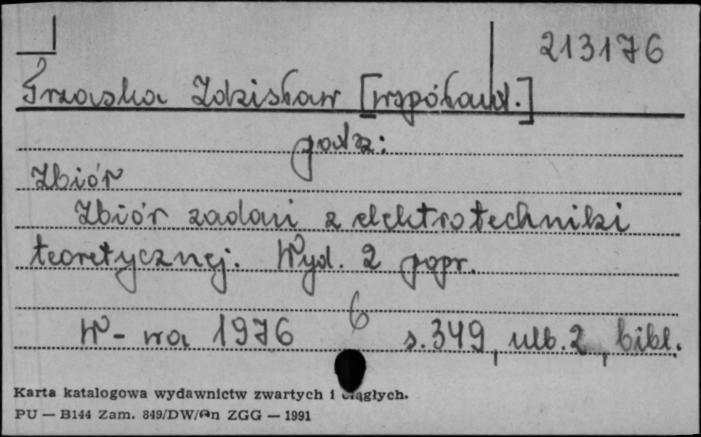 213176
Trzaska Zdzisław [współaut.]
podz:
Zbiór
Zbiór zadań z elektrotechniki
teoretycznej. Wyd. 2 popr.
W-wa 1976 6 s. 349, nlb. 2, bibl.
Karta katalogowa wydawnictw zwartych i ciągłych.
PU — B144 Zam. 849/DW/ ZGG — 1991